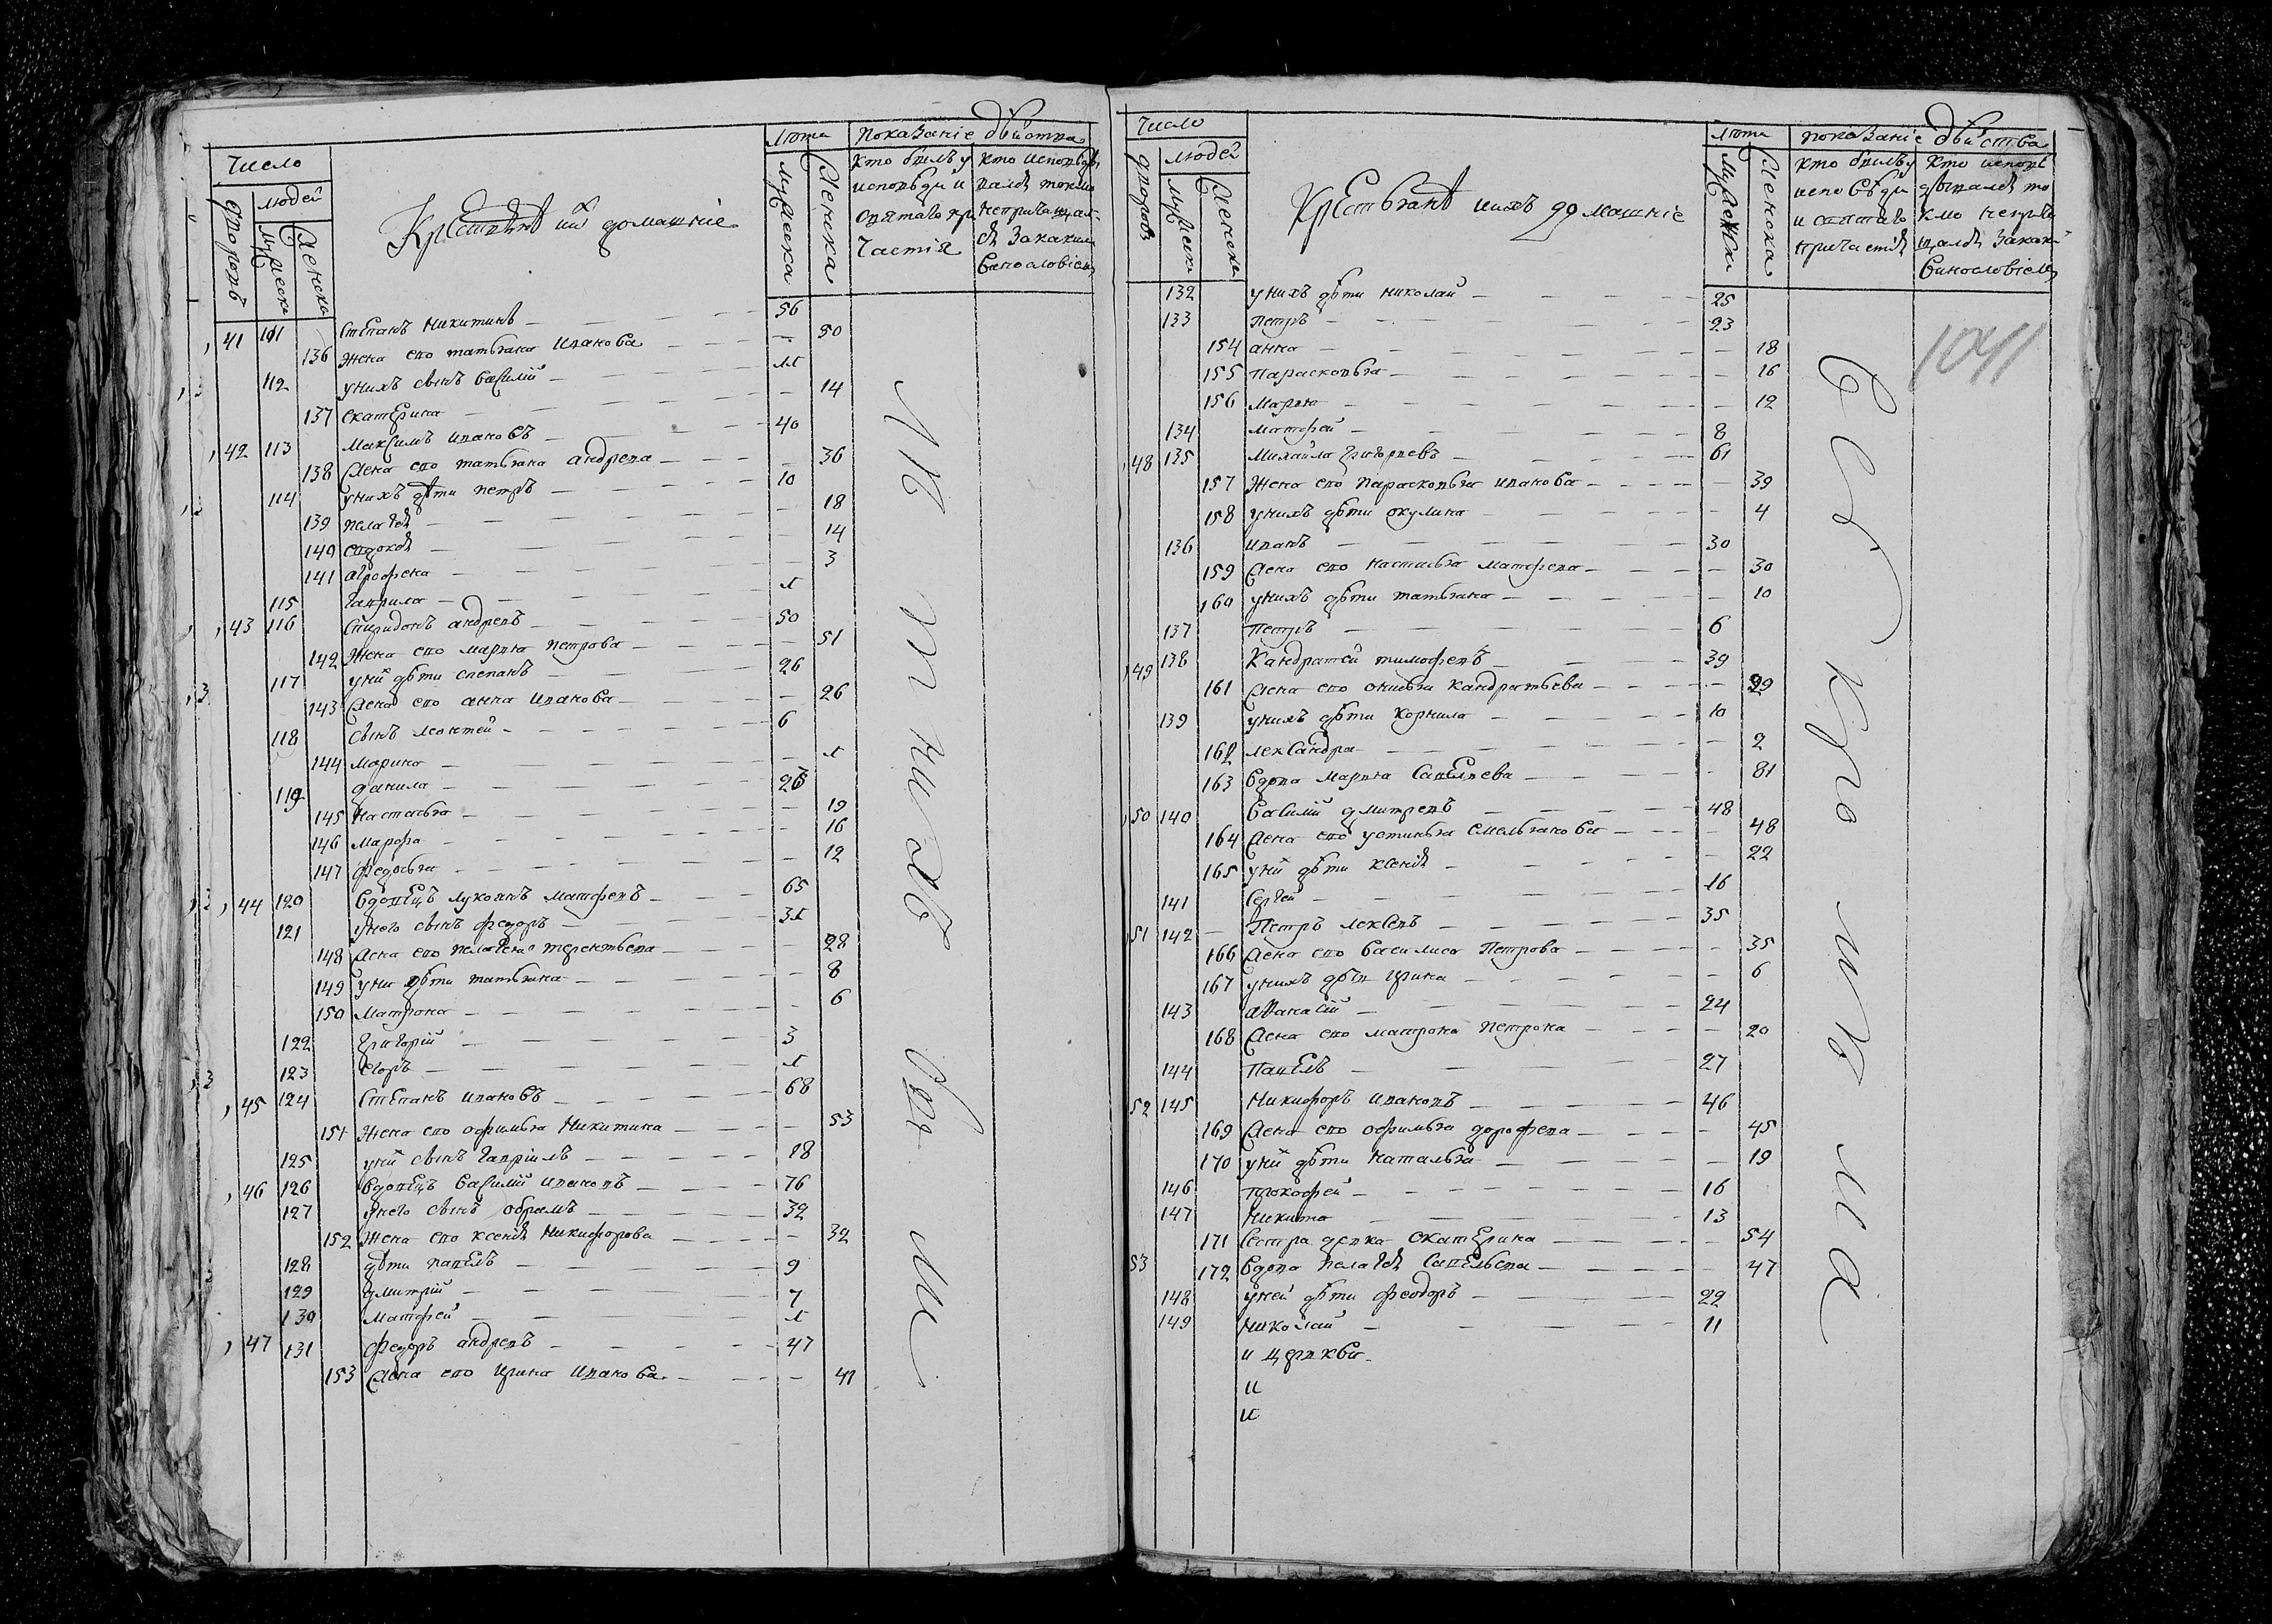 число
людей
дворовъ
мужеска
женска
Крестьянѣ ий домашніе
лѣта
мужеска
женска
показаніе дѣйства
кто былъ у исповѣди и святаго причастія
41 111 Степанъ Никитинъ 56
136 жена ево татьяна иванова 50
112 унихъ сынъ василій
137 екатерина 14
42 113 максимъ ивановъ 40
138 жена ево татьяна андрева 36
114 унихъ дѣти петръ 10
139 пелагѣя 18
140 евдокѣя 14
141 агрофена 3
115 гаврила
43 116 спиридонъ андревъ 50
142 жена ево марья петрова 51
117 уний дѣти степанъ 26
143 жена ево анна иванова 26
118 сынъ леонтей 6
144 марина
119 данила 26
145 настасья 19
146 марфа 16
147 федосья 12
44 120 вдовецъ лукоянъ матфевъ 65
121 унего сынъ федоръ
148 жена ево пелагея терентьева 28
149 уни дѣти татьяна 8
150 матрона 6
122 григорій 3
123 егоръ
45 124 Степанъ ивановъ 68
151 жена ево офимья никитина 53
125 уний сынъ гавріилъ 18
46 126 вдовецъ василій ивановъ 76
127 унего сынъ обрамъ 32
152 жена ево ксенѣя никифорова 32
128 дѣти павелъ 9
129 дмитрій 7
130 матфей
47 131 федоръ андревъ 47
153 жена ево ирина иванова 41
у нихъ были
число
людей
дворовъ
мужеска
женска
Крестьянѣ инихъ домашніе
лѣта
мужеска
женска
показаніе дѣйства
кто былъ у исповѣди и святаго причастія
1041
132 унихъ дѣти николай 25
133 петръ 23
154 анна 18
155 парасковья 16
156 марья 12
134 матфей 8
48 135 михайла григорьевъ 61
157 жена ево парасковья иванова 39
158 унихъ дѣти окулина 4
136 иванъ 30
159 жена ево настасья матфева 30
160 унихъ дѣти татьяна 10
137 петръ 6
49 138 кандратей тимофевъ 39
161 жена ево онисья кандратьева
139 унихъ дѣти корнила 10
162 лександра 2
163 вдова марья савельева 81
50 140 василій дмитревъ 48
164 жена ево устинья емельянова 48
165 уний дѣти ксенѣя 22
141 сергей 16
51 142 петръ лексевъ 35
166 жена ево василиса петрова 35
167 унихъ дѣти ирина 6
143 аѳанасій 24
168 жена ево матрона петрова 20
144 павелъ 27
52 145 никифоръ ивановъ 46
169 жена ево офимья дорофева 45
170 уний дѣти наталья 19
146 прокофей 16
147 никита 13
171 сестра девка екатерина 54
53 172 вдова пелагѣя савельева 47
148 уней дѣти феодоръ 22
149 николай 11
и церкви
и
и